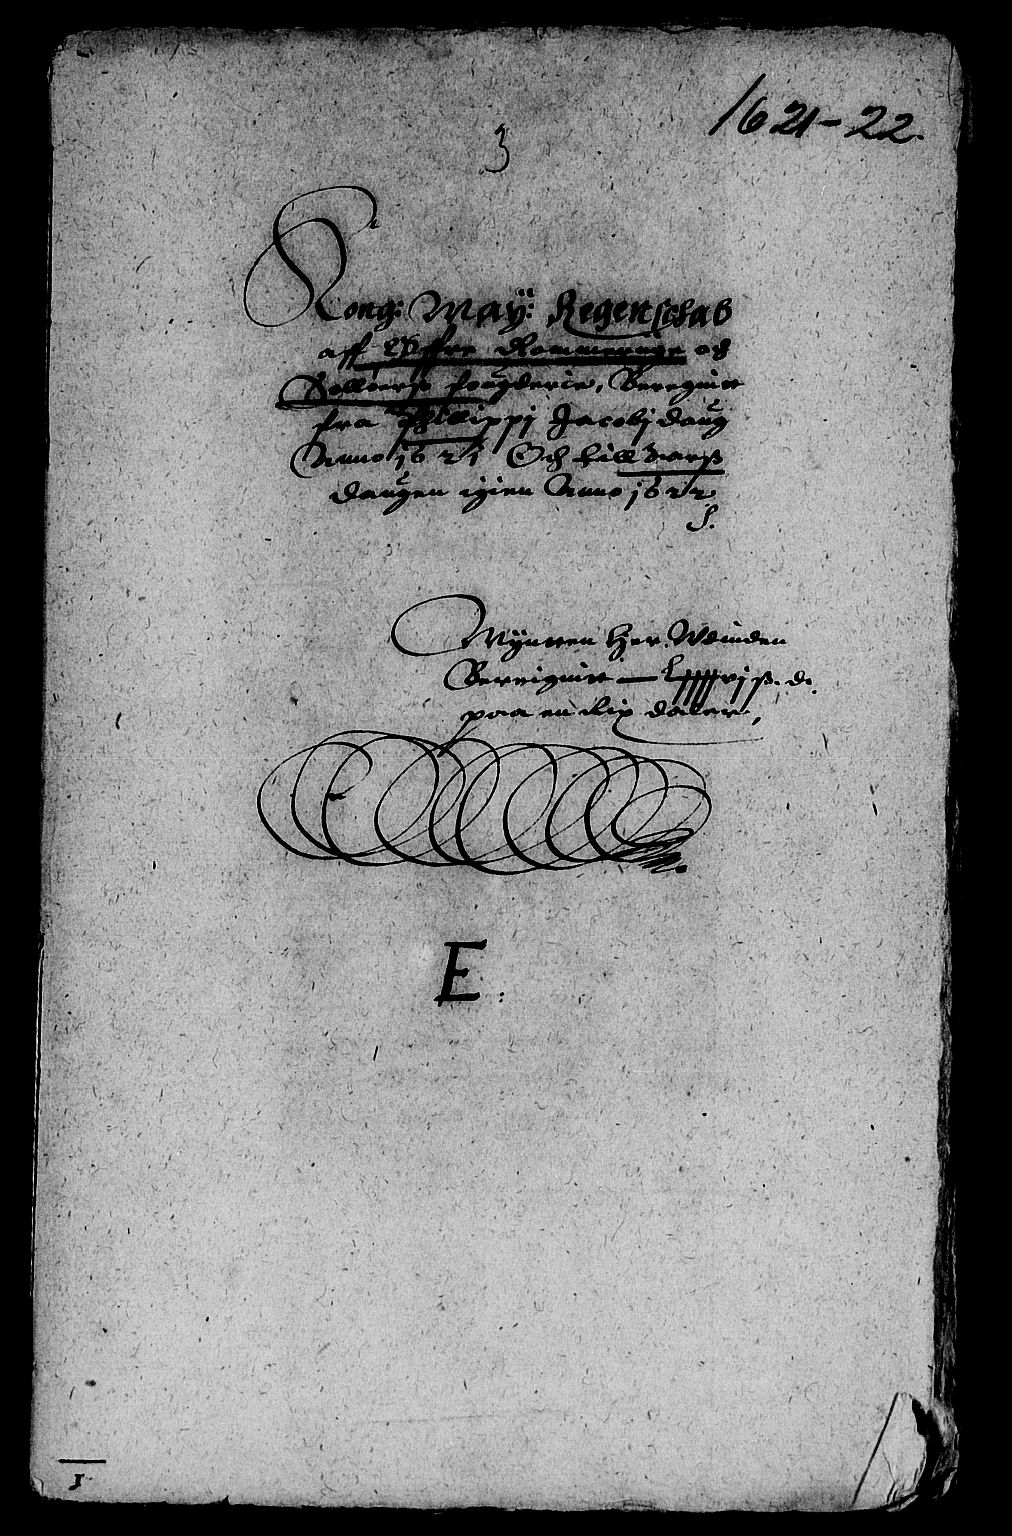 1621-22.
3
Kong: May: Regenschab
aff Øffre Rommerige och
Solløers fougderie, Beregnitt
fra Philippj Jacobj daug
Anno 1621 Och till Aarss
daugen igien Anno 1622
S.
Mÿntten her Udinden
Bereignitt — Lxxxxvj ß. d.
paa en Rix daler,
E.
1